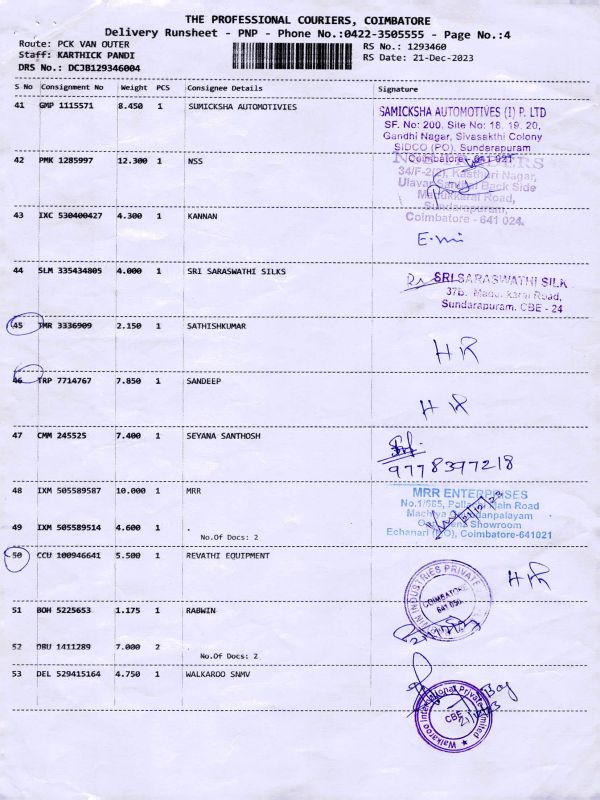 THE PROFESSIONAL COURIERS, COIMBATORE
Delivery Runsheet - PNP - Phone No.:0422-3505555 - Page No.:4
Route: PCK VAN OUTER
RS No.: 1293460
Staff: KARTHICK PANDI
RS Date: 21-Dec-2023
DRS No.: DCJB129346004
S No Consignment No Weight PCS Consignee Details Signature
41 GMP 1115571 8.450 1 SUMICKSHA AUTOMOTIVIES
SAMICKSHA AUTOMOTIVES (I) P. LTD
SF. No: 200, Site No: 18, 19, 20,
Gandhi Nagar, Sivasakthi Colony
SIDCO (PO), Sundarapuram
Coimbatore - 641 021
42 PMK 1285997 12.300 1 NSS
34/F-2(2), Kasthuri Nagar,
Back Side
Madukkarai Road,
Sundarapuram,
Coimbatore - 641 024.
43 IXC 530400427 4.300 1 KANNAN
44 SLM 335434805 4.000 1 SRI SARASWATHI SILKS
SRI SARASWATHI SILK
37b, Madukkarai Road,
Sundarapuram, CBE - 24
45 TMR 3336909 2.150 1 SATHISHKUMAR
HR
46 TRP 7714767 7.850 1 SANDEEP
HR
47 CMM 245525 7.400 1 SEYANA SANTHOSH
9778397218
48 IXM 505589587 10.000 1 MRR
MRR ENTERPRISES
No.1/665, Main Road
Showroom
Echanari (PO), Coimbatore-641021
49 IXM 505589514 4.600 1
No.Of Docs: 2
50 CCU 100946641 5.500 1 REVATHI EQUIPMENT
HR
INDUSTRIES PRIVATE
COIMBATORE
641 050
51 BOH 5225653 1.175 1 RABWIN
52 DBU 1411289 7.000 2
No.Of Docs: 2
53 DEL 529415164 4.750 1 WALKAROO SNMV
Walkaroo International Private Limited
CBE